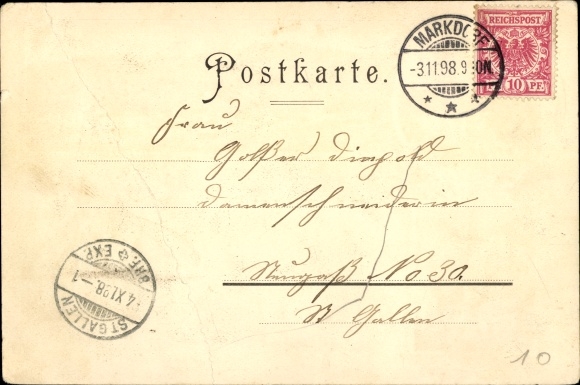 REICHSPOST
10 PF.
MARKDORF
-3.11.98.9-10N.
Postkarte.
Frau
Damenschneiderin
Neugaß No 30.
St Gallen
ST. GALLEN
4.XI.98.-1
BRF. EXP.
10